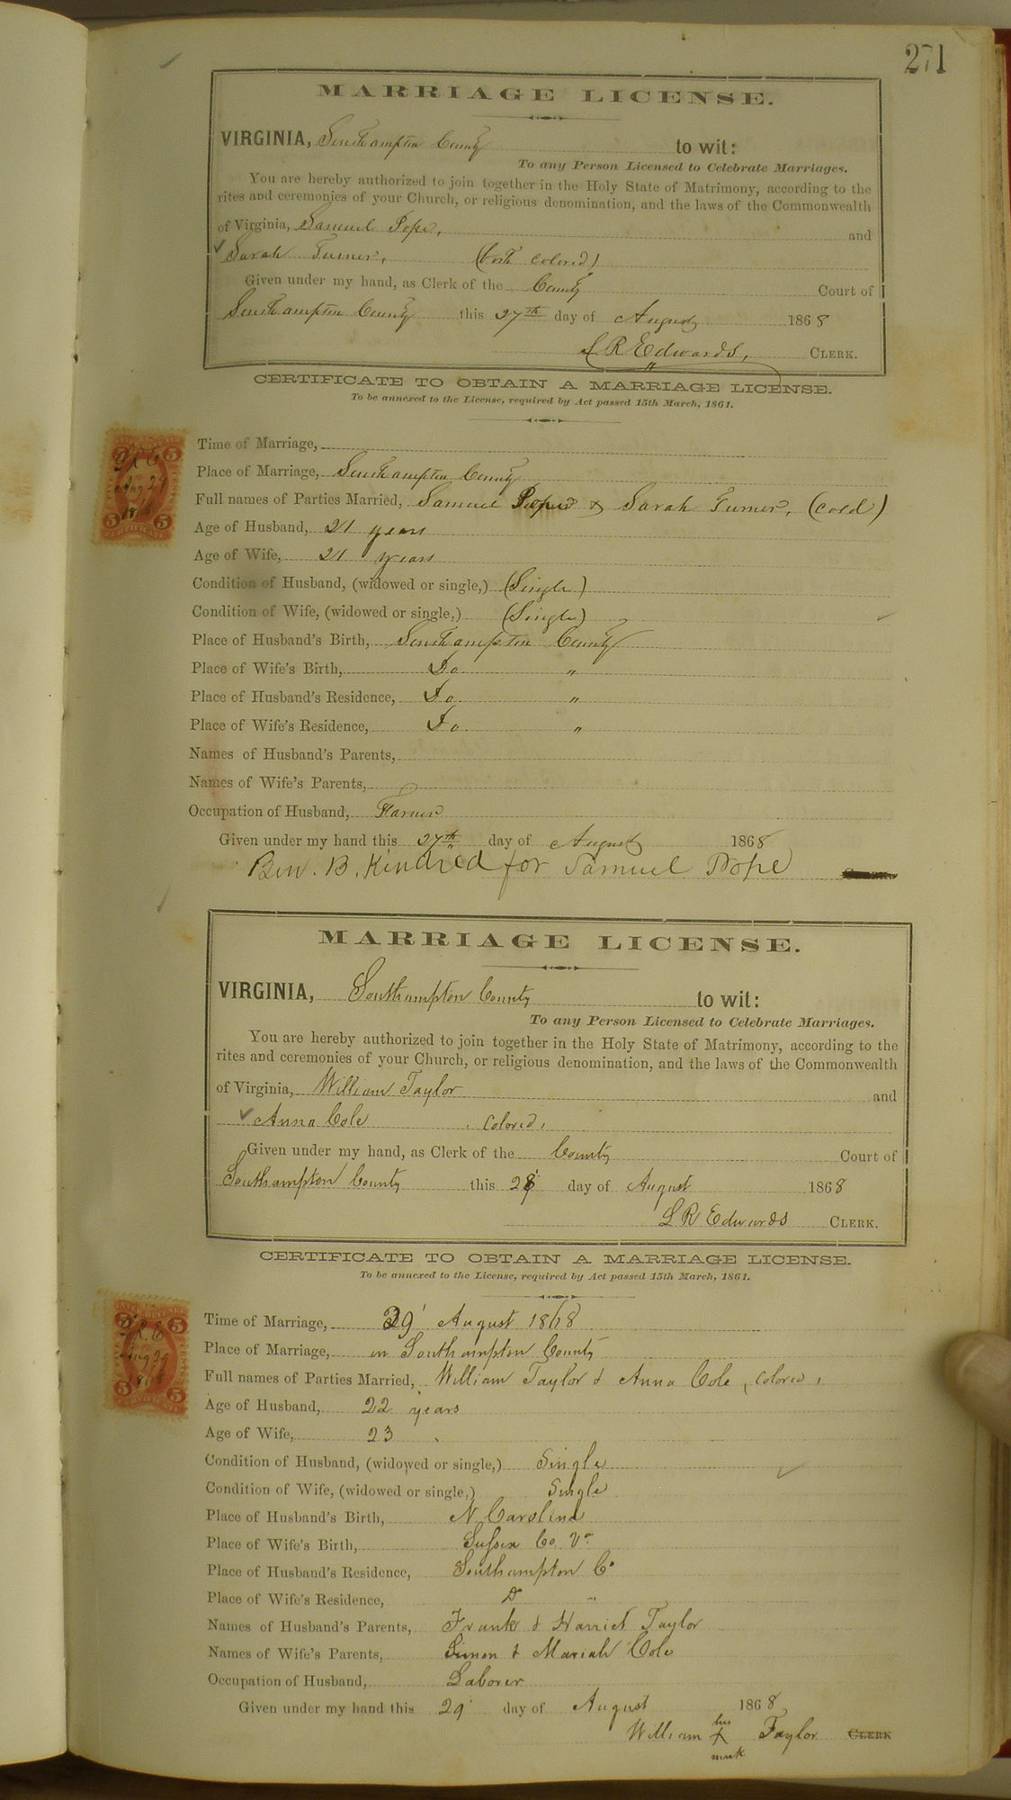 271
MARRIAGE LICENSE.
VIRGINIA, Southampton County to wit:
To any Person Licensed to Celebrate Marriages.
You are hereby authorized to join together in the Holy State of Matrimony, according to the
rites and ceremonies of your Church, or religious denomination, and the laws of the Commonwealth
of Virginia, Samuel Pope, and
Sarah Turner, (both colored)
Given under my hand, as Clerk of the County Court of
Southampton County this 27th day of August 1868
L R Edwards, CLERK.
CERTIFICATE TO OBTAIN A MARRIAGE LICENSE.
To be annexed to the License, required by Act passed 15th March, 1861.
Time of Marriage,
Place of Marriage, Southampton County
Full names of Parties Married, Samuel Pope & Sarah Turner, (cold)
Age of Husband, 21 years
Age of Wife, 21 years
Condition of Husband, (widowed or single,) (Single)
Condition of Wife, (widowed or single,) (Single)
Place of Husband's Birth, Southampton County
Place of Wife's Birth, Do "
Place of Husband's Residence, Do "
Place of Wife's Residence, Do "
Names of Husband's Parents,
Names of Wife's Parents,
Occupation of Husband, Farmer
Given under my hand this 27th day of August 1868
Ben. B. Kindred for Samuel Pope
MARRIAGE LICENSE.
VIRGINIA, Southampton County to wit:
To any Person Licensed to Celebrate Marriages.
You are hereby authorized to join together in the Holy State of Matrimony, according to the
rites and ceremonies of your Church, or religious denomination, and the laws of the Commonwealth
of Virginia, William Taylor and
Anna Cole, colored,
Given under my hand, as Clerk of the County Court of
Southampton County this day of August 1868
L R Edwards CLERK.
CERTIFICATE TO OBTAIN A MARRIAGE LICENSE.
To be annexed to the License, required by Act passed 15th March, 1861.
Time of Marriage, 29' August 1868
Place of Marriage, in Southampton County
Full names of Parties Married, William Taylor & Anna Cole, colored,
Age of Husband, 22 years
Age of Wife, 23 "
Condition of Husband, (widowed or single,) Single
Condition of Wife, (widowed or single,) Single
Place of Husband's Birth, N Carolina
Place of Wife's Birth, Sussex Co Va
Place of Husband's Residence, Southampton Co
Place of Wife's Residence, Do "
Names of Husband's Parents, Frank & Harriet Taylor
Names of Wife's Parents, Simon & Mariah Cole
Occupation of Husband, Laborer
Given under my hand this 29' day of August 1868
William his X mark Taylor CLERK